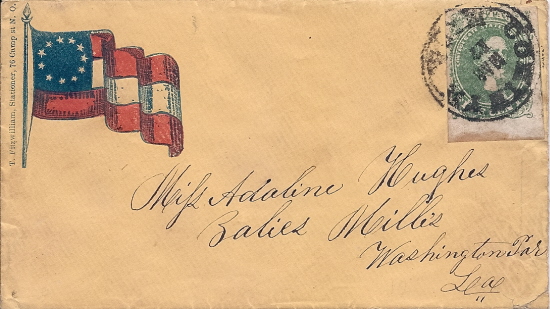 T. Fitzwilliam, Stationer, 76 Camp st N. O.
Miss Adaline Hughes
Zalies Millis
Washington Par
La